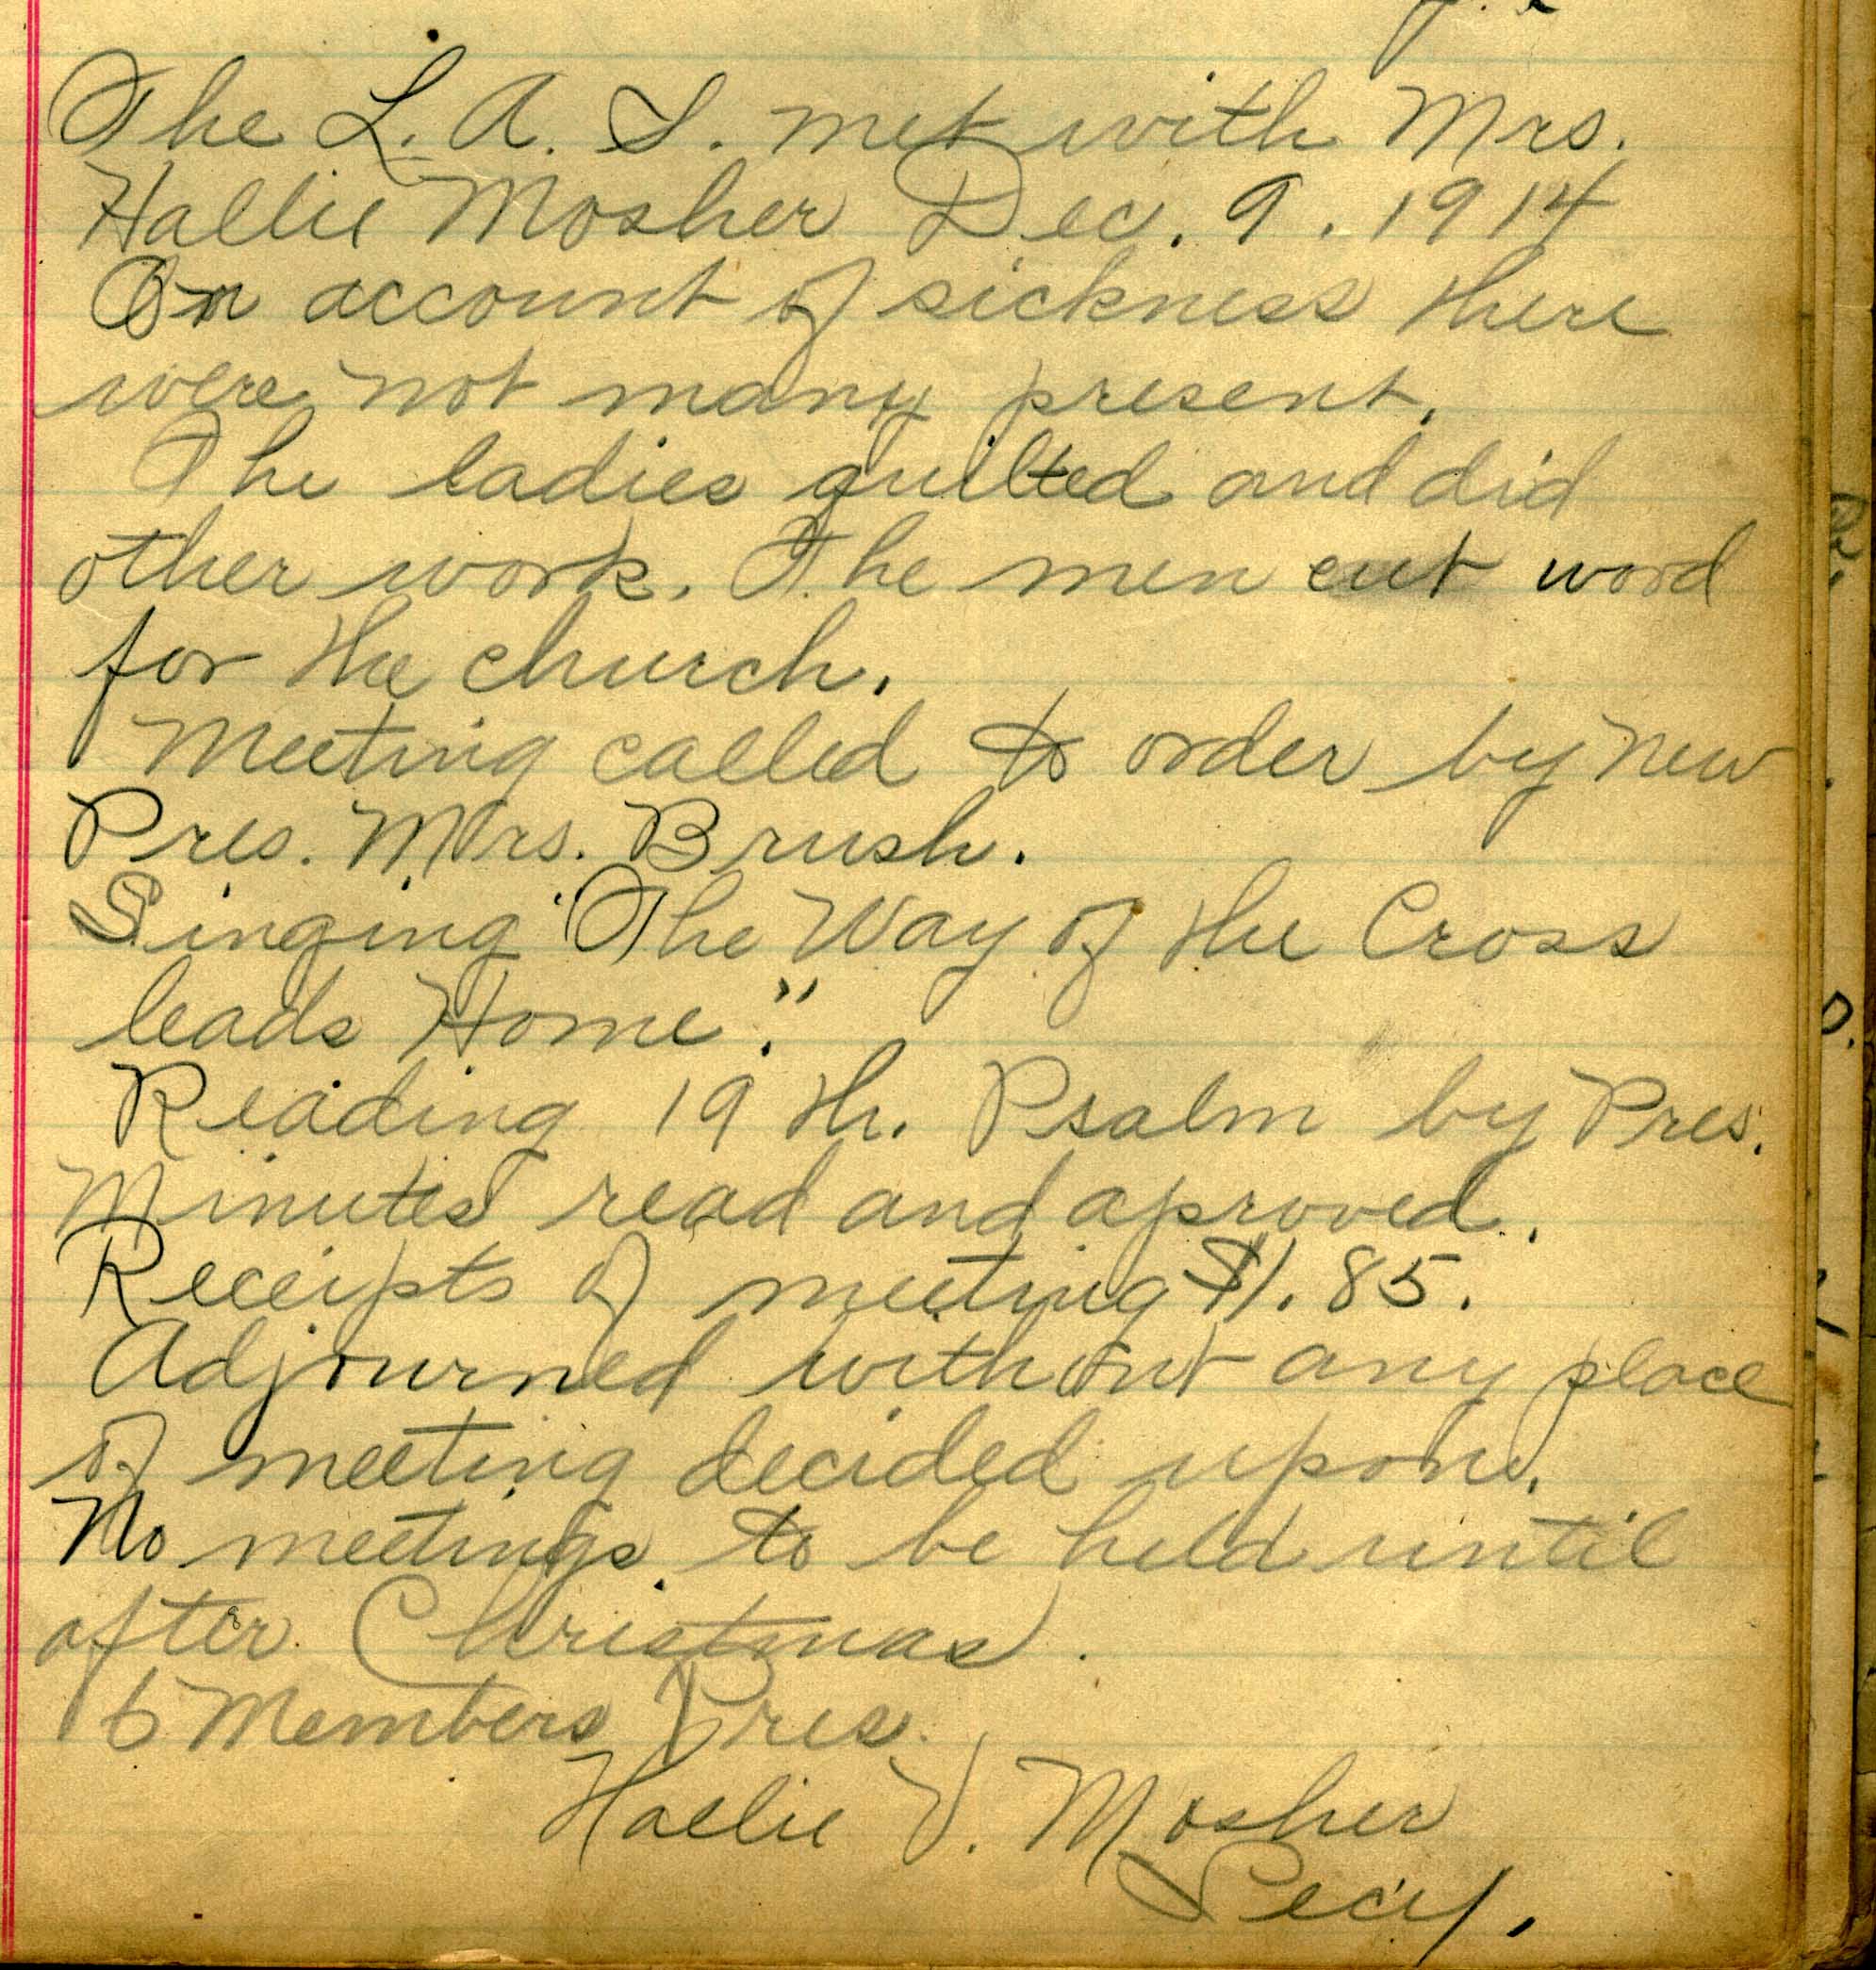 The L. A. S. met with Mrs.
Hallie Mosher Dec. 9. 1914
On account of sickness there
were not many present.
The ladies quilted and did
other work. The men cut wood
for the church.
Meeting called to order by new
Pres. Mrs. Brush.
Singing "The Way of the Cross
leads Home."
Reading 19 th. Psalm by Pres.
Minutes read and aproved.
Receipts of meeting $1.85.
Adjourned without any place
of meeting decided upon.
No meetings to be held until
after Christmas.
6 Members Pres.
Hallie V. Mosher
Sec'y.